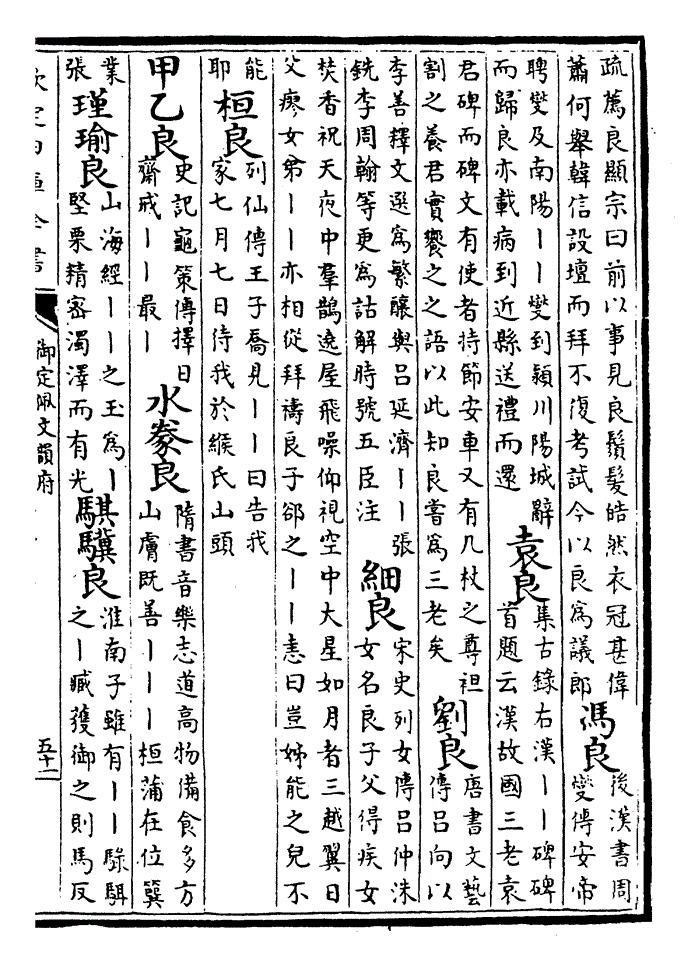 疏薦良顯宗曰前以事見良鬚髮皓然衣冠甚偉
蕭何舉韓信設壇而拜不復考試今以良為議郎
馮良
後漢書周
燮傳安帝
聘燮及南陽丨丨燮到潁川陽城辭
而歸良亦載病到近縣送禮而還
袁良
集古錄右漢丨丨碑碑
首題云漢故國三老袁
君碑而碑文有使者持節安車又有几杖之尊袒
割之養君實饗之之語以此知良嘗為三老矣
劉良
唐書文藝
傳吕向以
李善釋文選為繁釀與吕延濟丨丨張
銑李周翰等更為詁解時號五臣注
細良
宋史列女傳吕仲洙
女名良子父得疾女
焚香祝天夜中羣鵲遶屋飛噪仰視空中大星如月者三越翼日
父瘳女弟丨丨亦相從拜禱良子郤之丨丨恚曰豈姊能之兒不
能
耶
桓良
列仙傳王子喬見丨丨曰告我
家七月七日待我於緱氏山頭
甲乙良
史記龜策傳擇日
齋戒丨丨最丨
水豢良
隋書音樂志道高物備食多方
山膚既善丨丨丨桓蒲在位簨
業
張
瑾瑜良
山海經丨丨之玉為丨
堅栗精密濁澤而有光
騏驥良
淮南子雖有丨丨騄駬
之丨臧獲御之則馬反
欽定四庫全書
御定佩文韻府
五十二